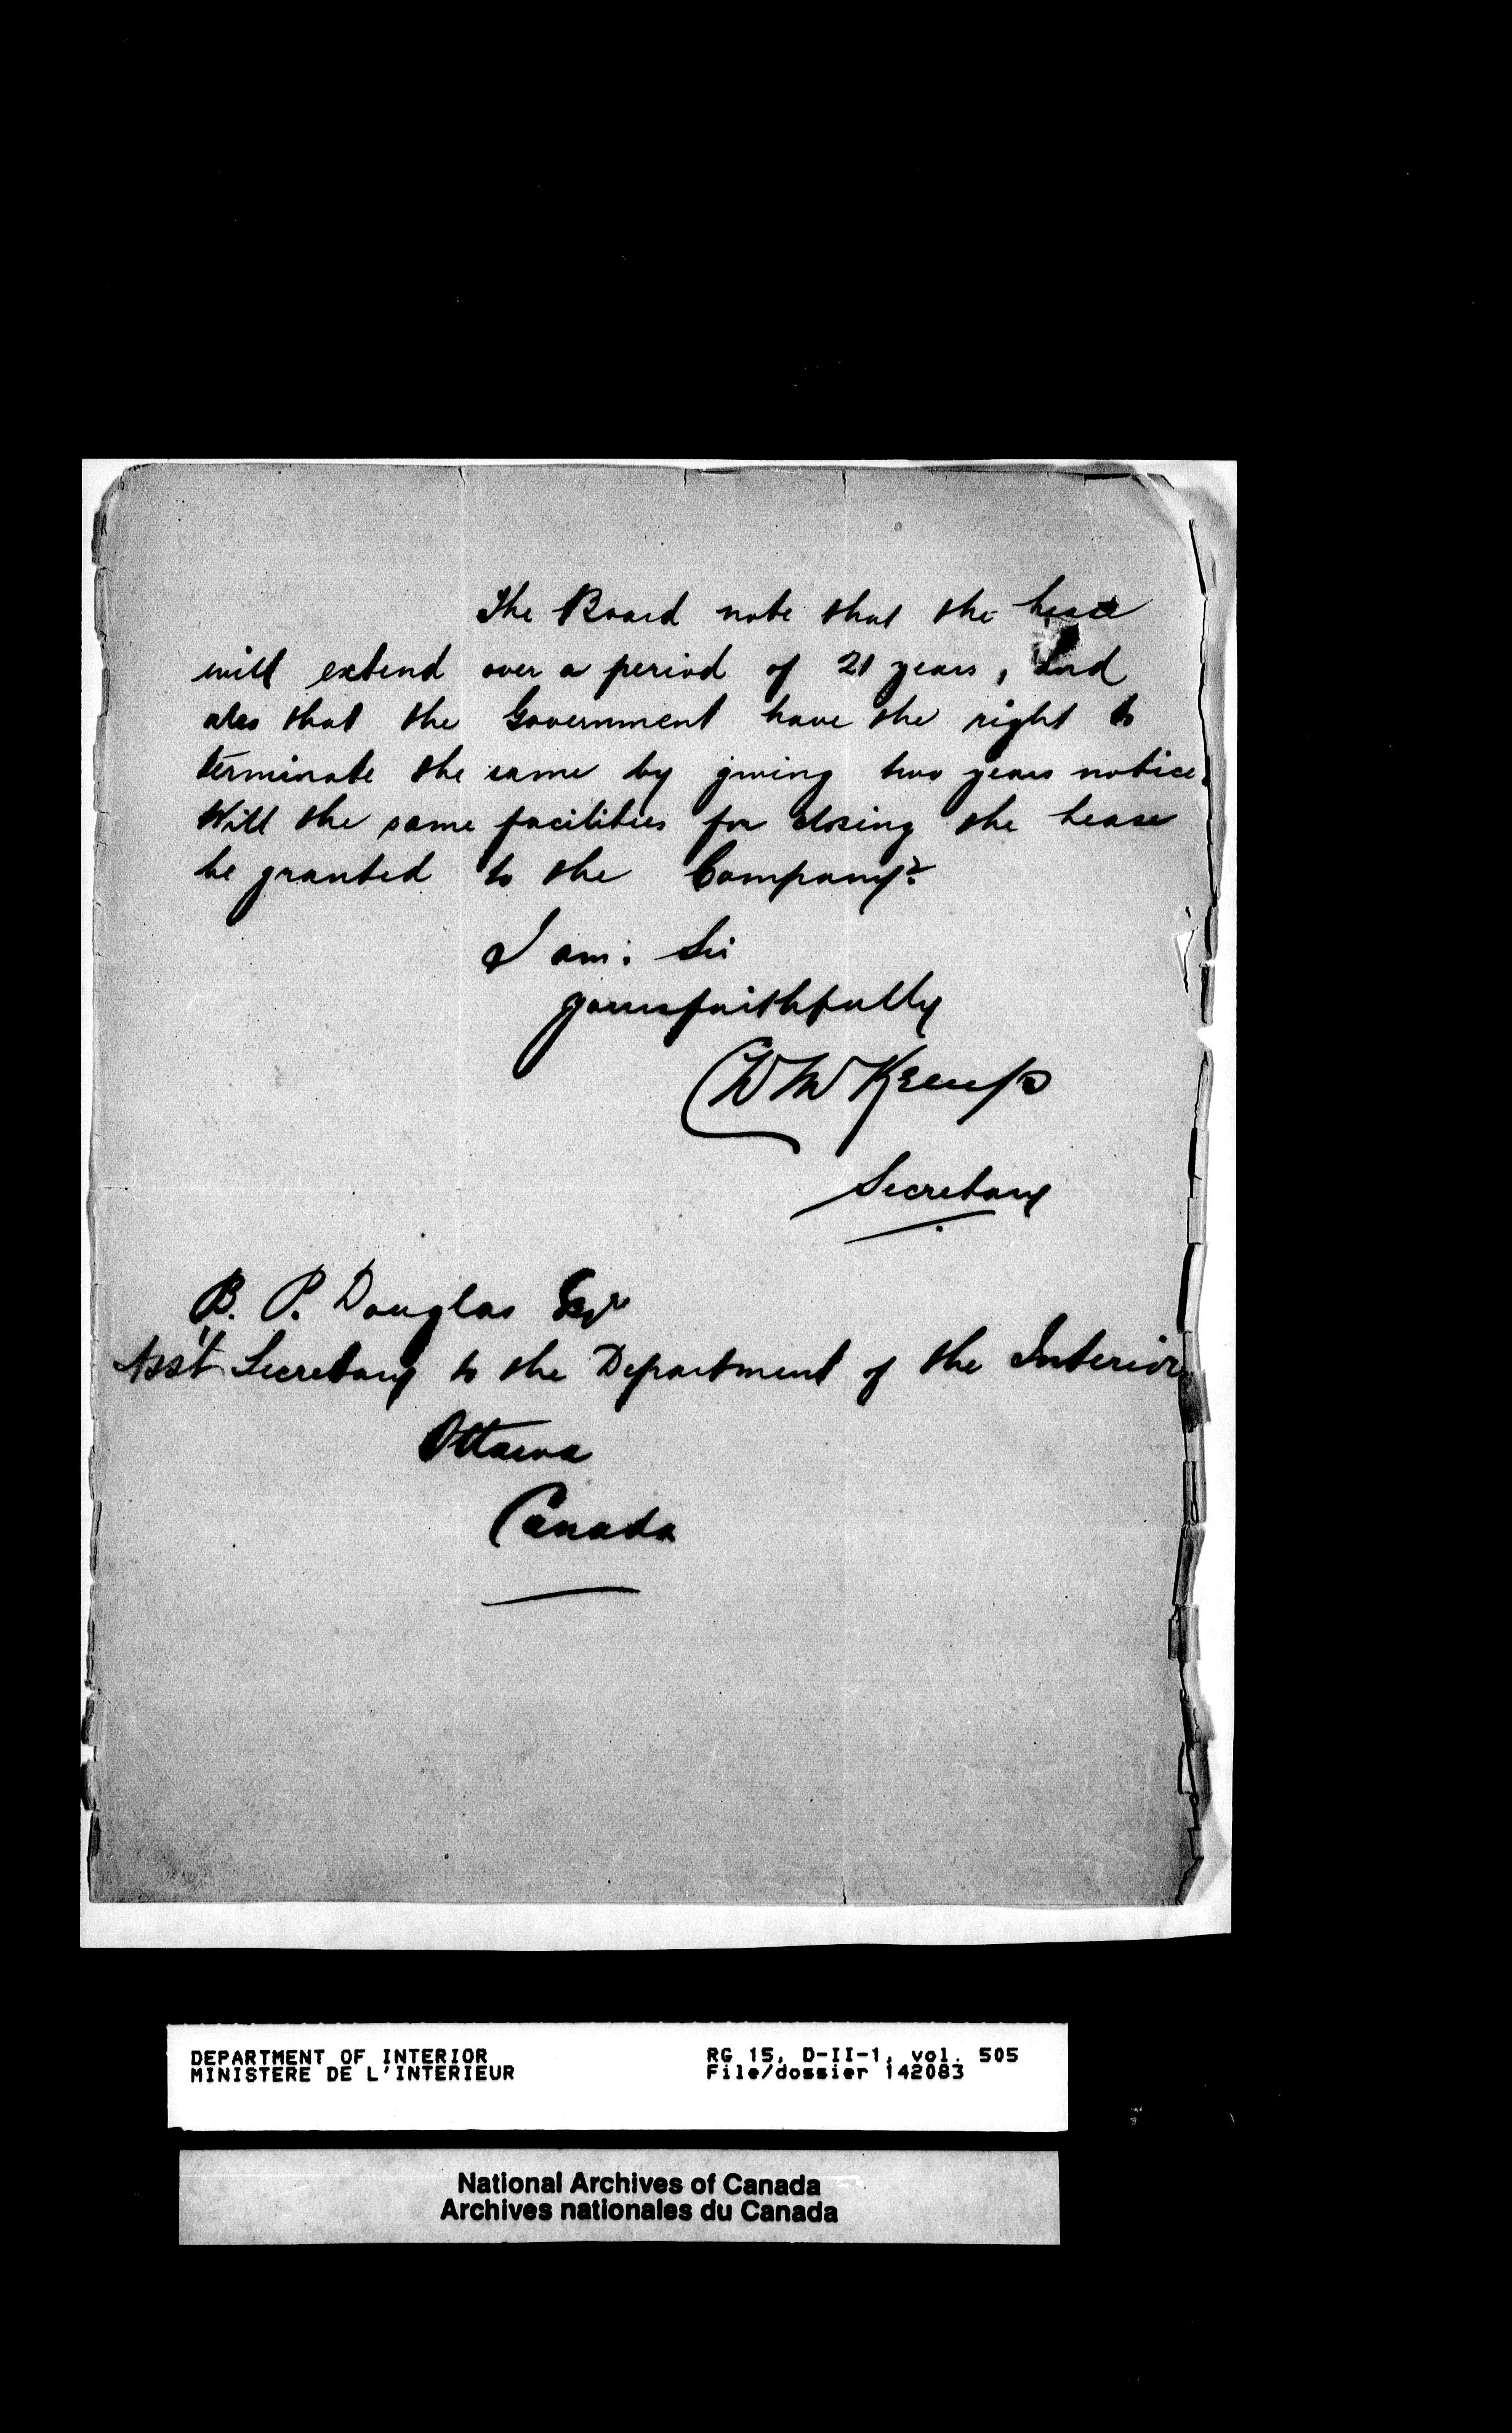 The Board note that the Lease
will extend over a period of 21 years, and
also that the Government have the right to
terminate the same by giving two years notice.
Will the same facilities for closing the Lease
be granted to the Company?
I am: Sir
yours faithfully
W M Kemp
Secretary
B. P. Douglas Esqr
Ass't Secretary to the Department of the Interior
Ottawa
Canada
DEPARTMENT OF INTERIOR
MINISTERE DE L'INTERIEUR
RG 15, D-II-1, vol. 505
File/dossier 142083
National Archives of Canada
Archives nationales du Canada